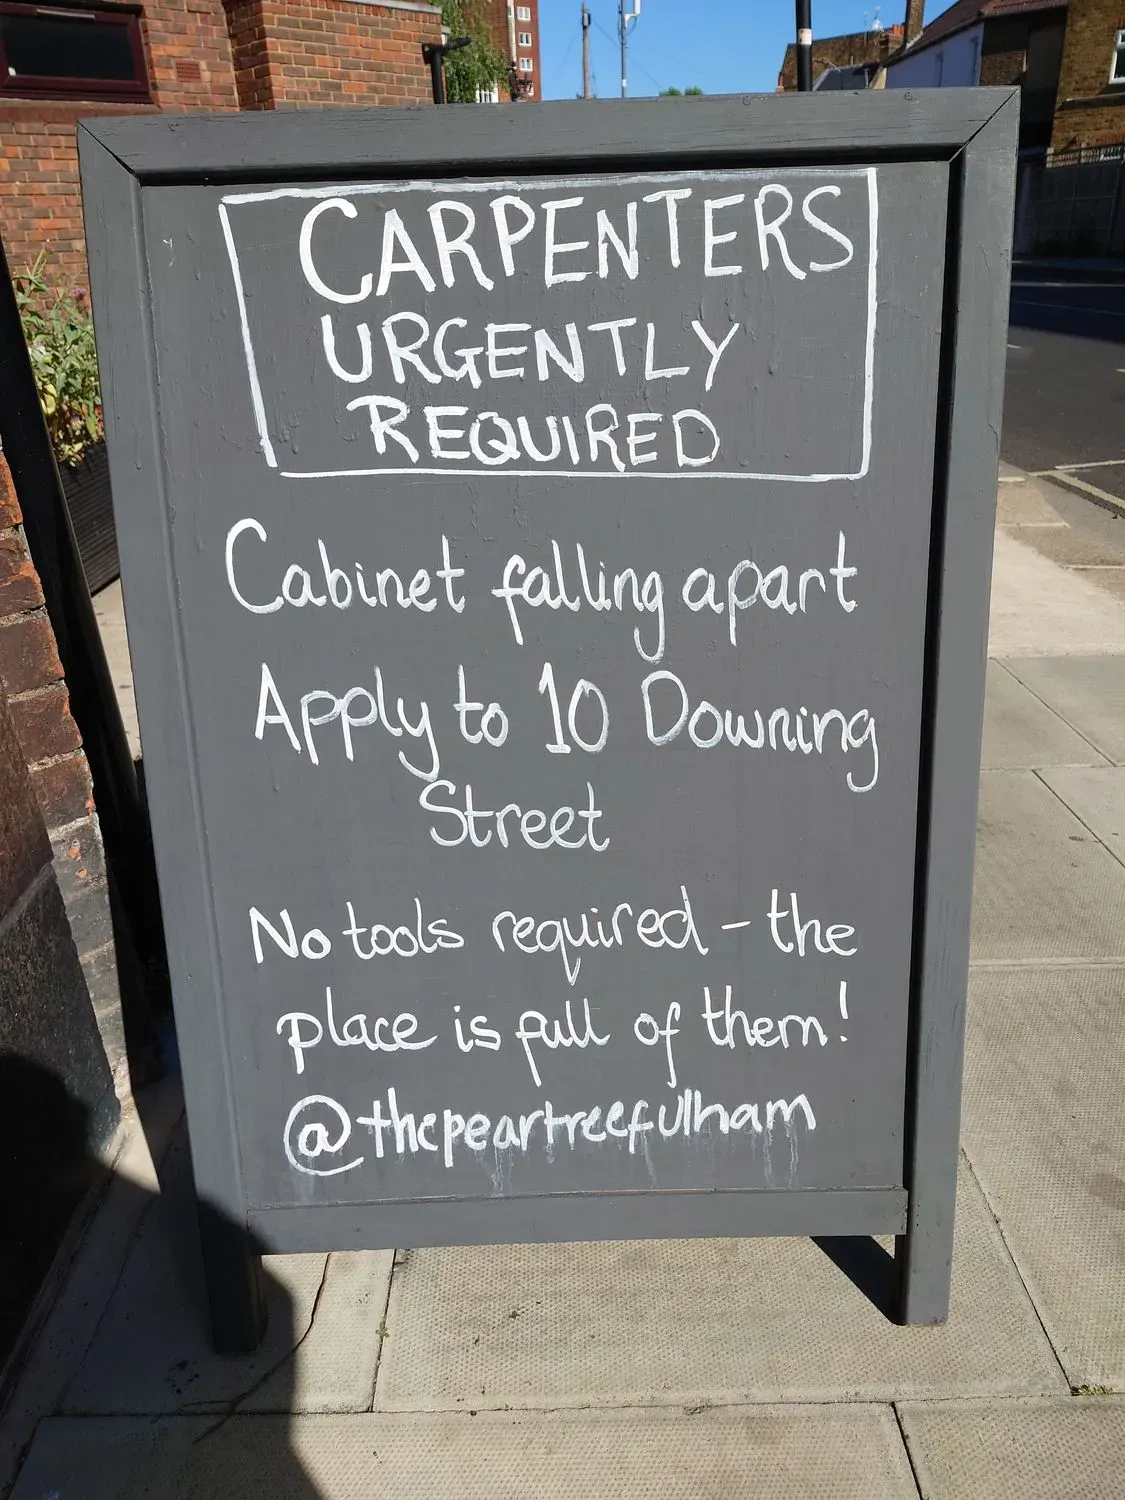 CARPENTERS
URGENTLY
REQUIRED
Cabinet falling apart
Apply to 10 Downing
Street
No tools required - the
place is full of them!
@thepeartreefulham